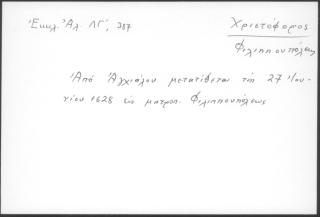 Ἐκκλ. Ἀλ. ΛΓ', 387
Χριστόφορος
Φιλιππουπόλεως
Ἀπὸ Ἀγχιάλου μετατίθεται τῇ 27 Ἰου-
νίου 1628 εἰς μητροπ. Φιλιππουπόλεως